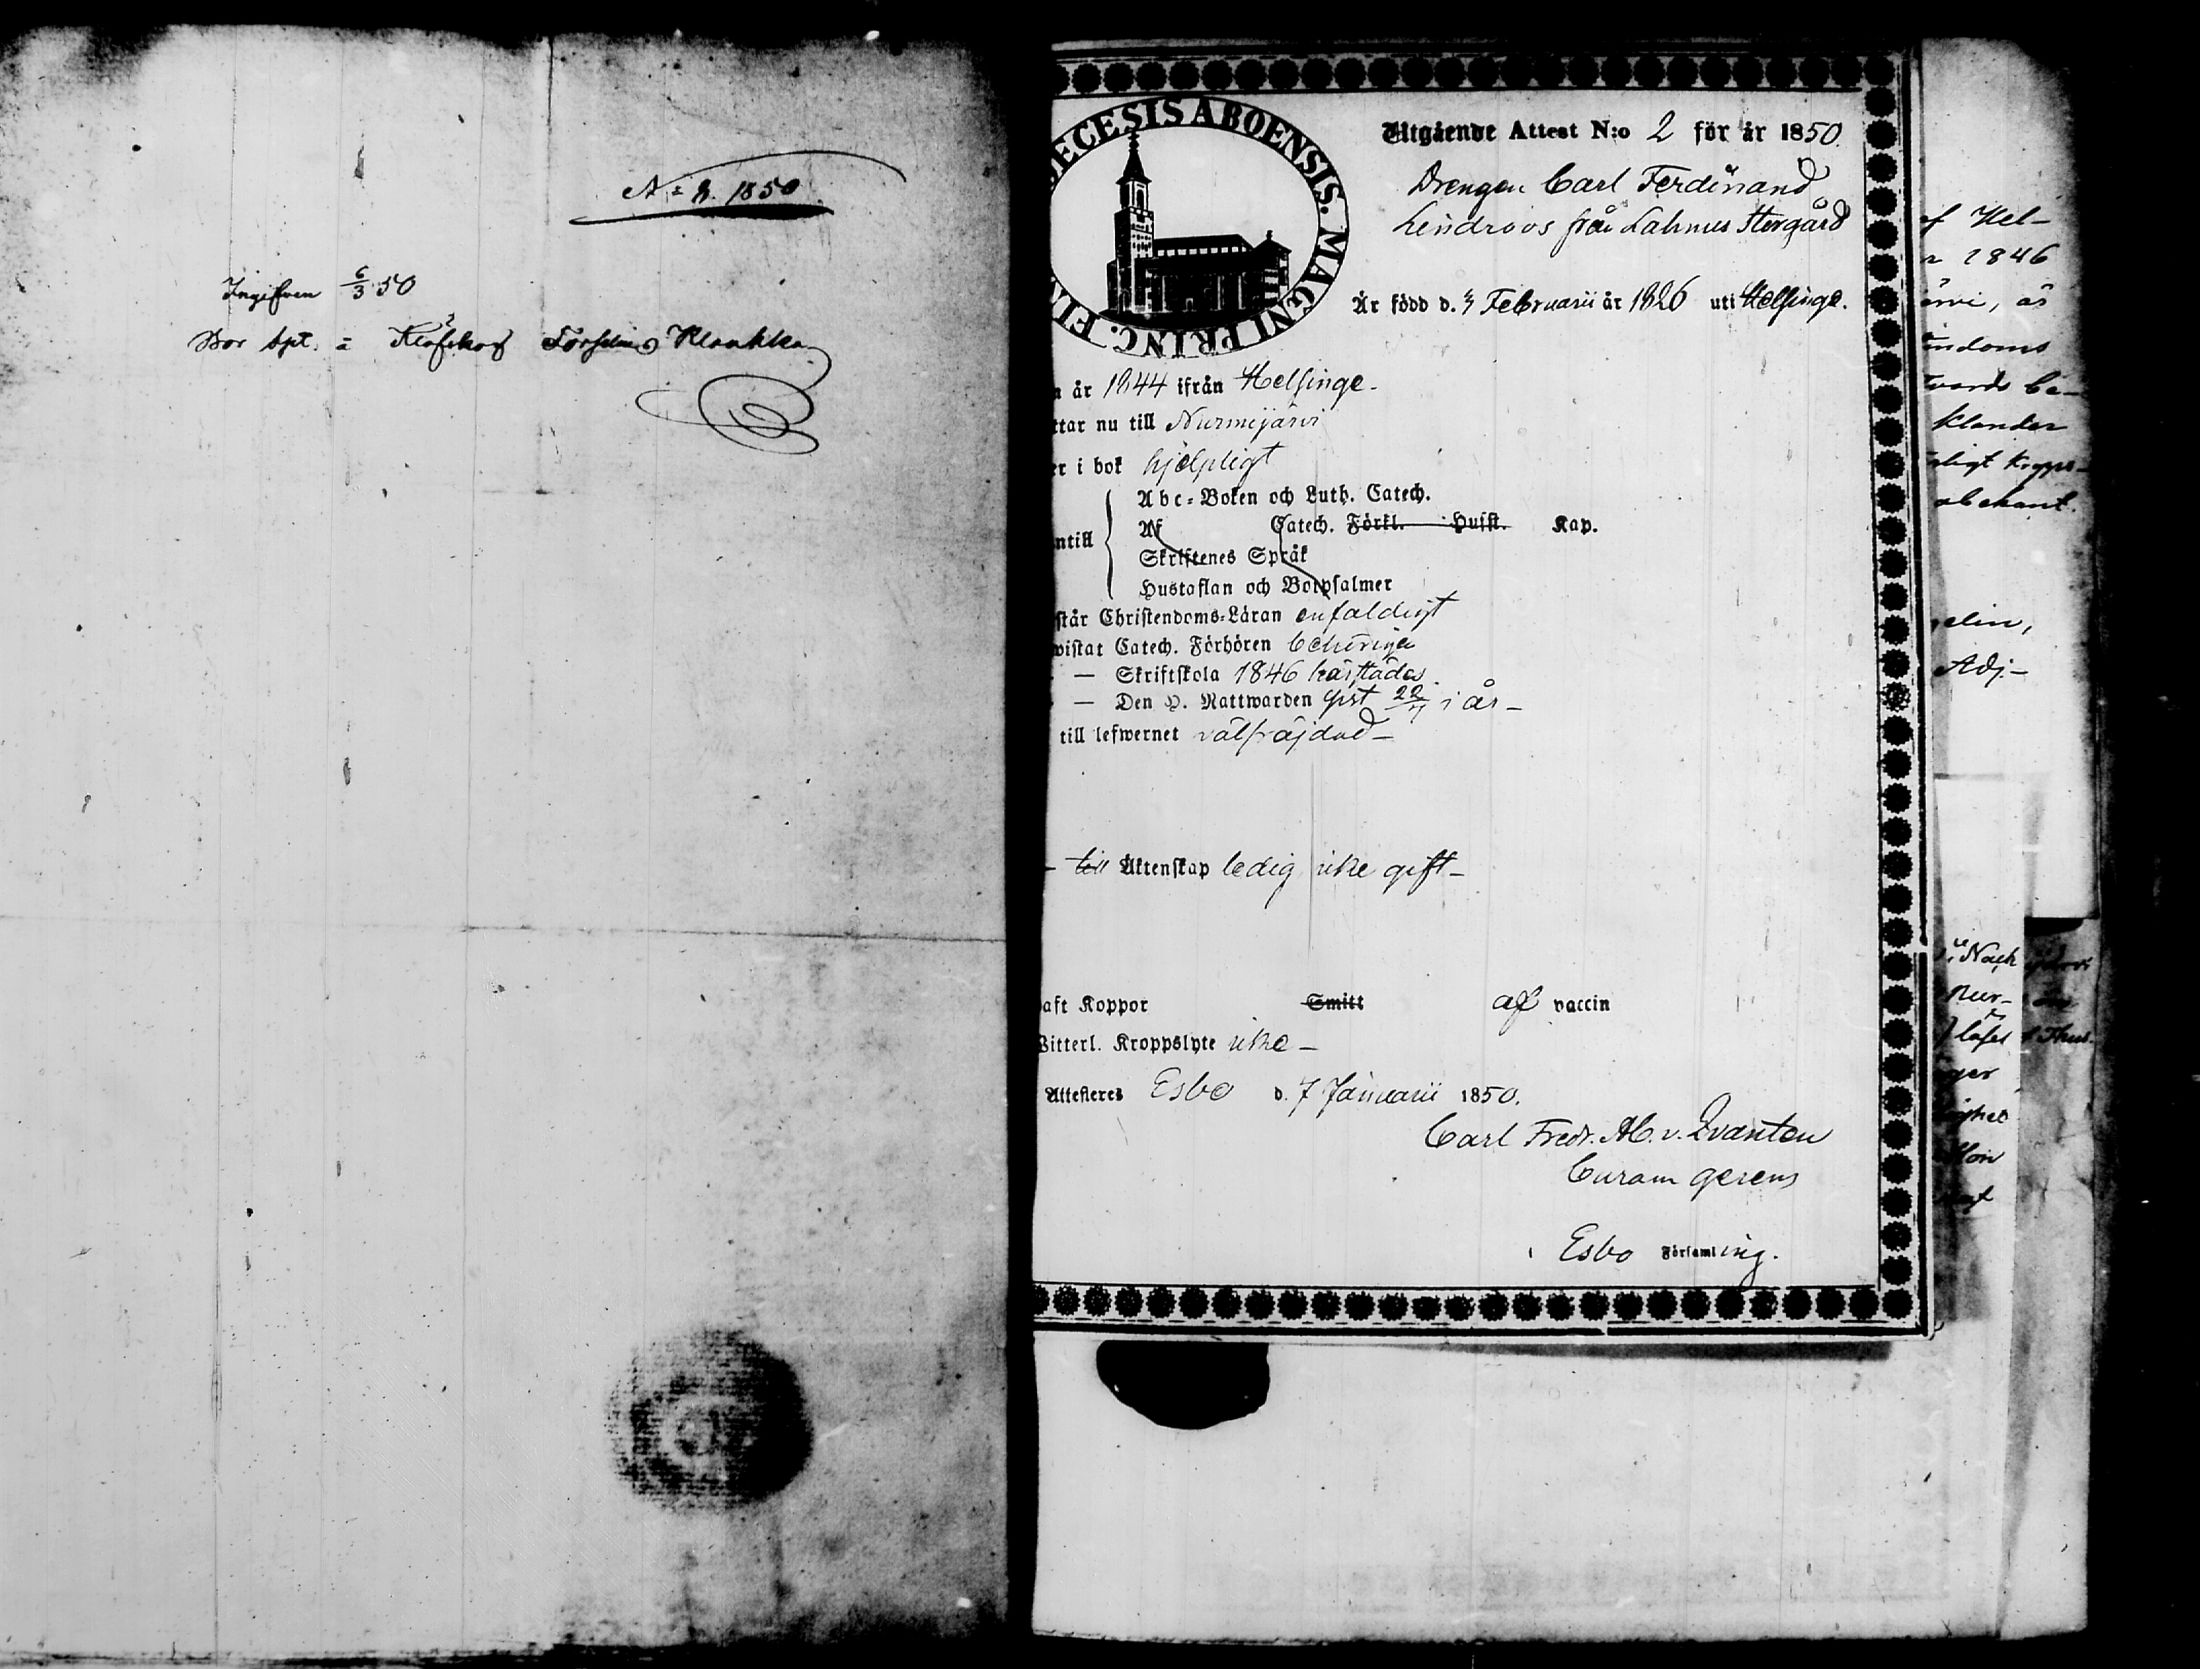 N:o 2. 1850
Ingifven 6/3 50
Bor Klaukka
DIECESIS ABOENSIS. MAGNI PRINC. FIN
Utgående Attest N:o 2 för år 1850.
Drengen Carl Ferdinand
Lindroos från Lahnus Storgård
Är född d. 4 Februarii år 1826 uti Helsinge.
n år 1844 ifrån Helsinge.
ttar nu till Nurmijärvi
er i bok hjelpligt
ntill
Abc-Boken och Luth. Catech.
Af Catech. Förkl. Husst. Kap.
Skriftenes Språk
Hustaflan och Botpsalmer
står Christendoms-Läran enfaldigt
wistat Catech. Förhören behörigen
— Skriftskola 1846 härstädes
— Den H. Nattwarden sist 22/7 i år —
till lefwernet välfräjdad —
— till Äktenskap ledig icke gift —
haft Koppor Smitt af vaccin
Witterl. Kroppslyte icke —
Attesteres Esbo d. 7 Januarii 1850.
Carl Fredr. Ab. v. Qvanten
Curam gerens
i Esbo Församling.
af Hel-
1846
ärvi, är
indoms
tvards be-
klander
ligt kropps-
obekant.
elin,
Adj.-
Nur-
läser